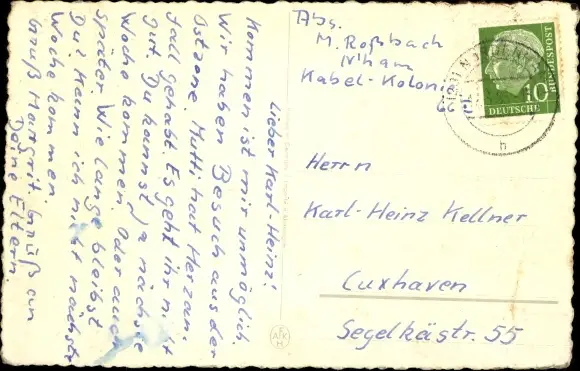 Lieber Karl-Heinz!
Kommen ist mir unmöglich.
Wir haben Besuch aus der
Ostzone. Mutti hat Herzan-
fall gehabt. Es geht ihr n. st
gut. Du kannst ja nächste
Woche kommen. Oder auch
später. Wie lange bleibst
Du? Kann ich nicht nächste
Woche kommen.
Gruß Margrit. Gruß an
Deine Eltern.
Abs.
M. Roßbach
N'ham
Kabel-Kolonie
DEUTSCHE
BUNDESPOST
10
h
Herrn
Karl-Heinz Kellner
Cuxhaven
Segelkästr. 55